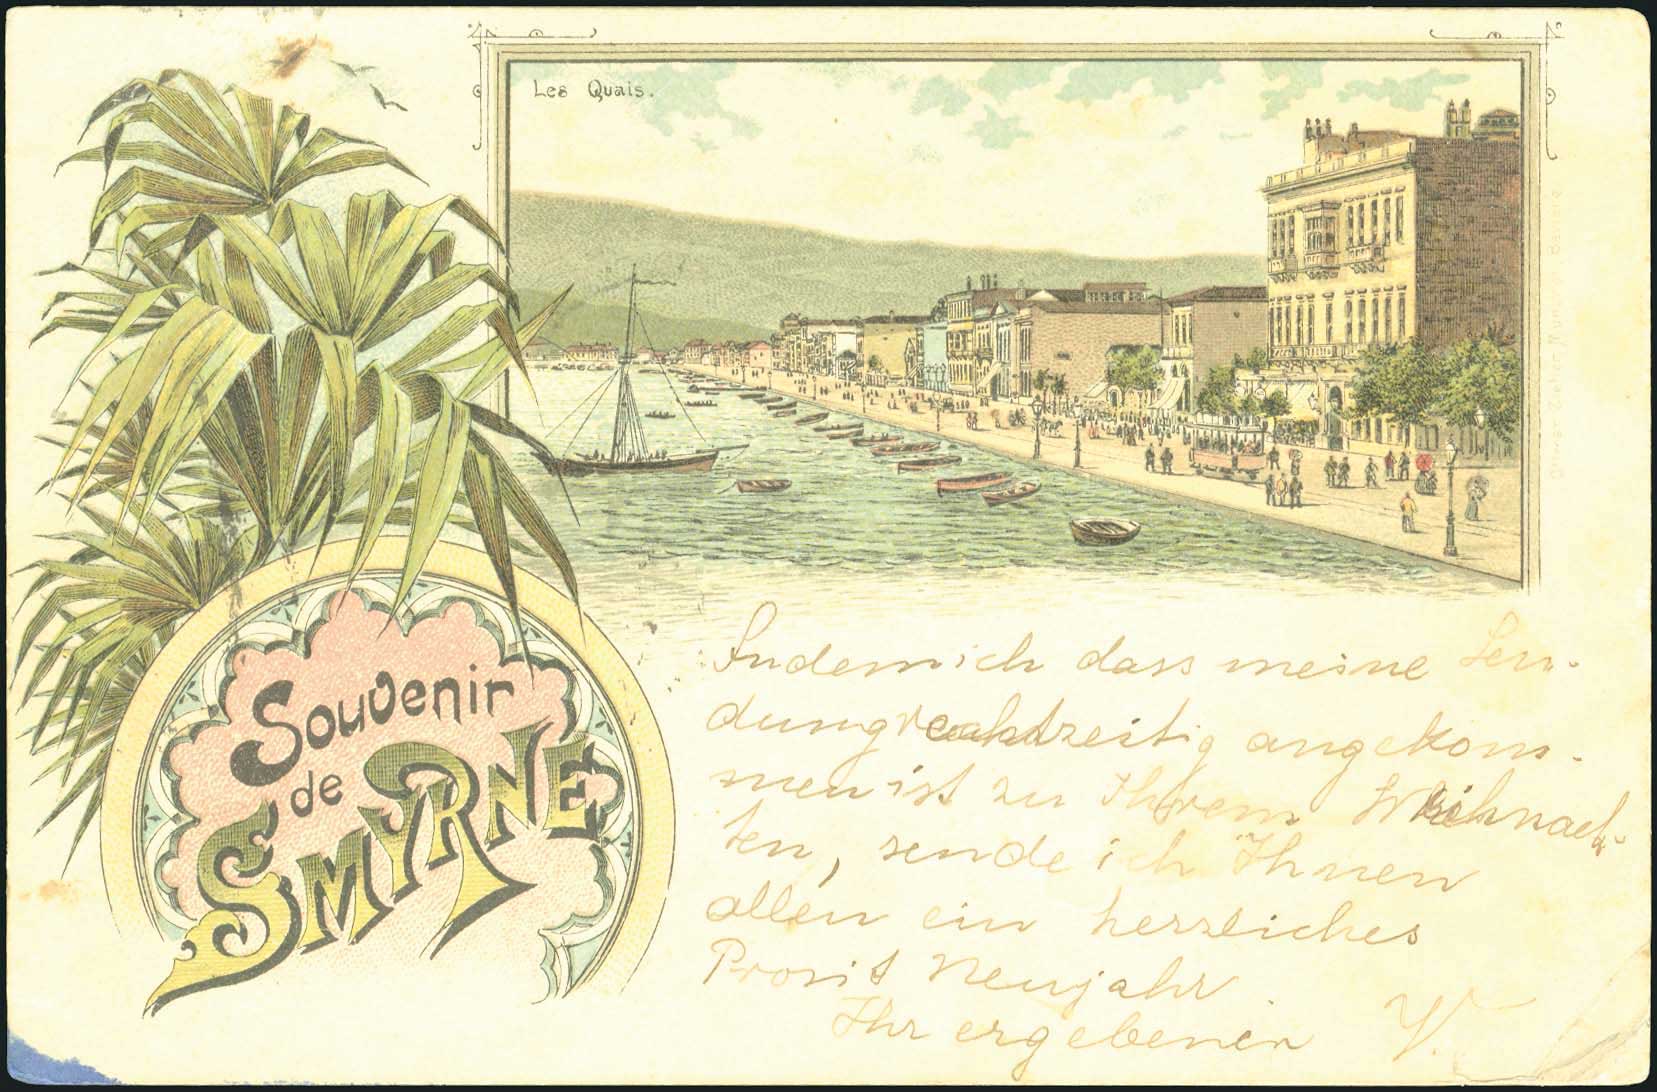 Les Quais.
Souvenir
de
SMYRNE
Indem ich dass meine Sen-
dung rechtzeitig angekom-
men ist zu Ihrem Weihnach-
ten, sende ich Ihnen
allen ein herzliches
Prosit Neujahr
Ihr ergebener V.